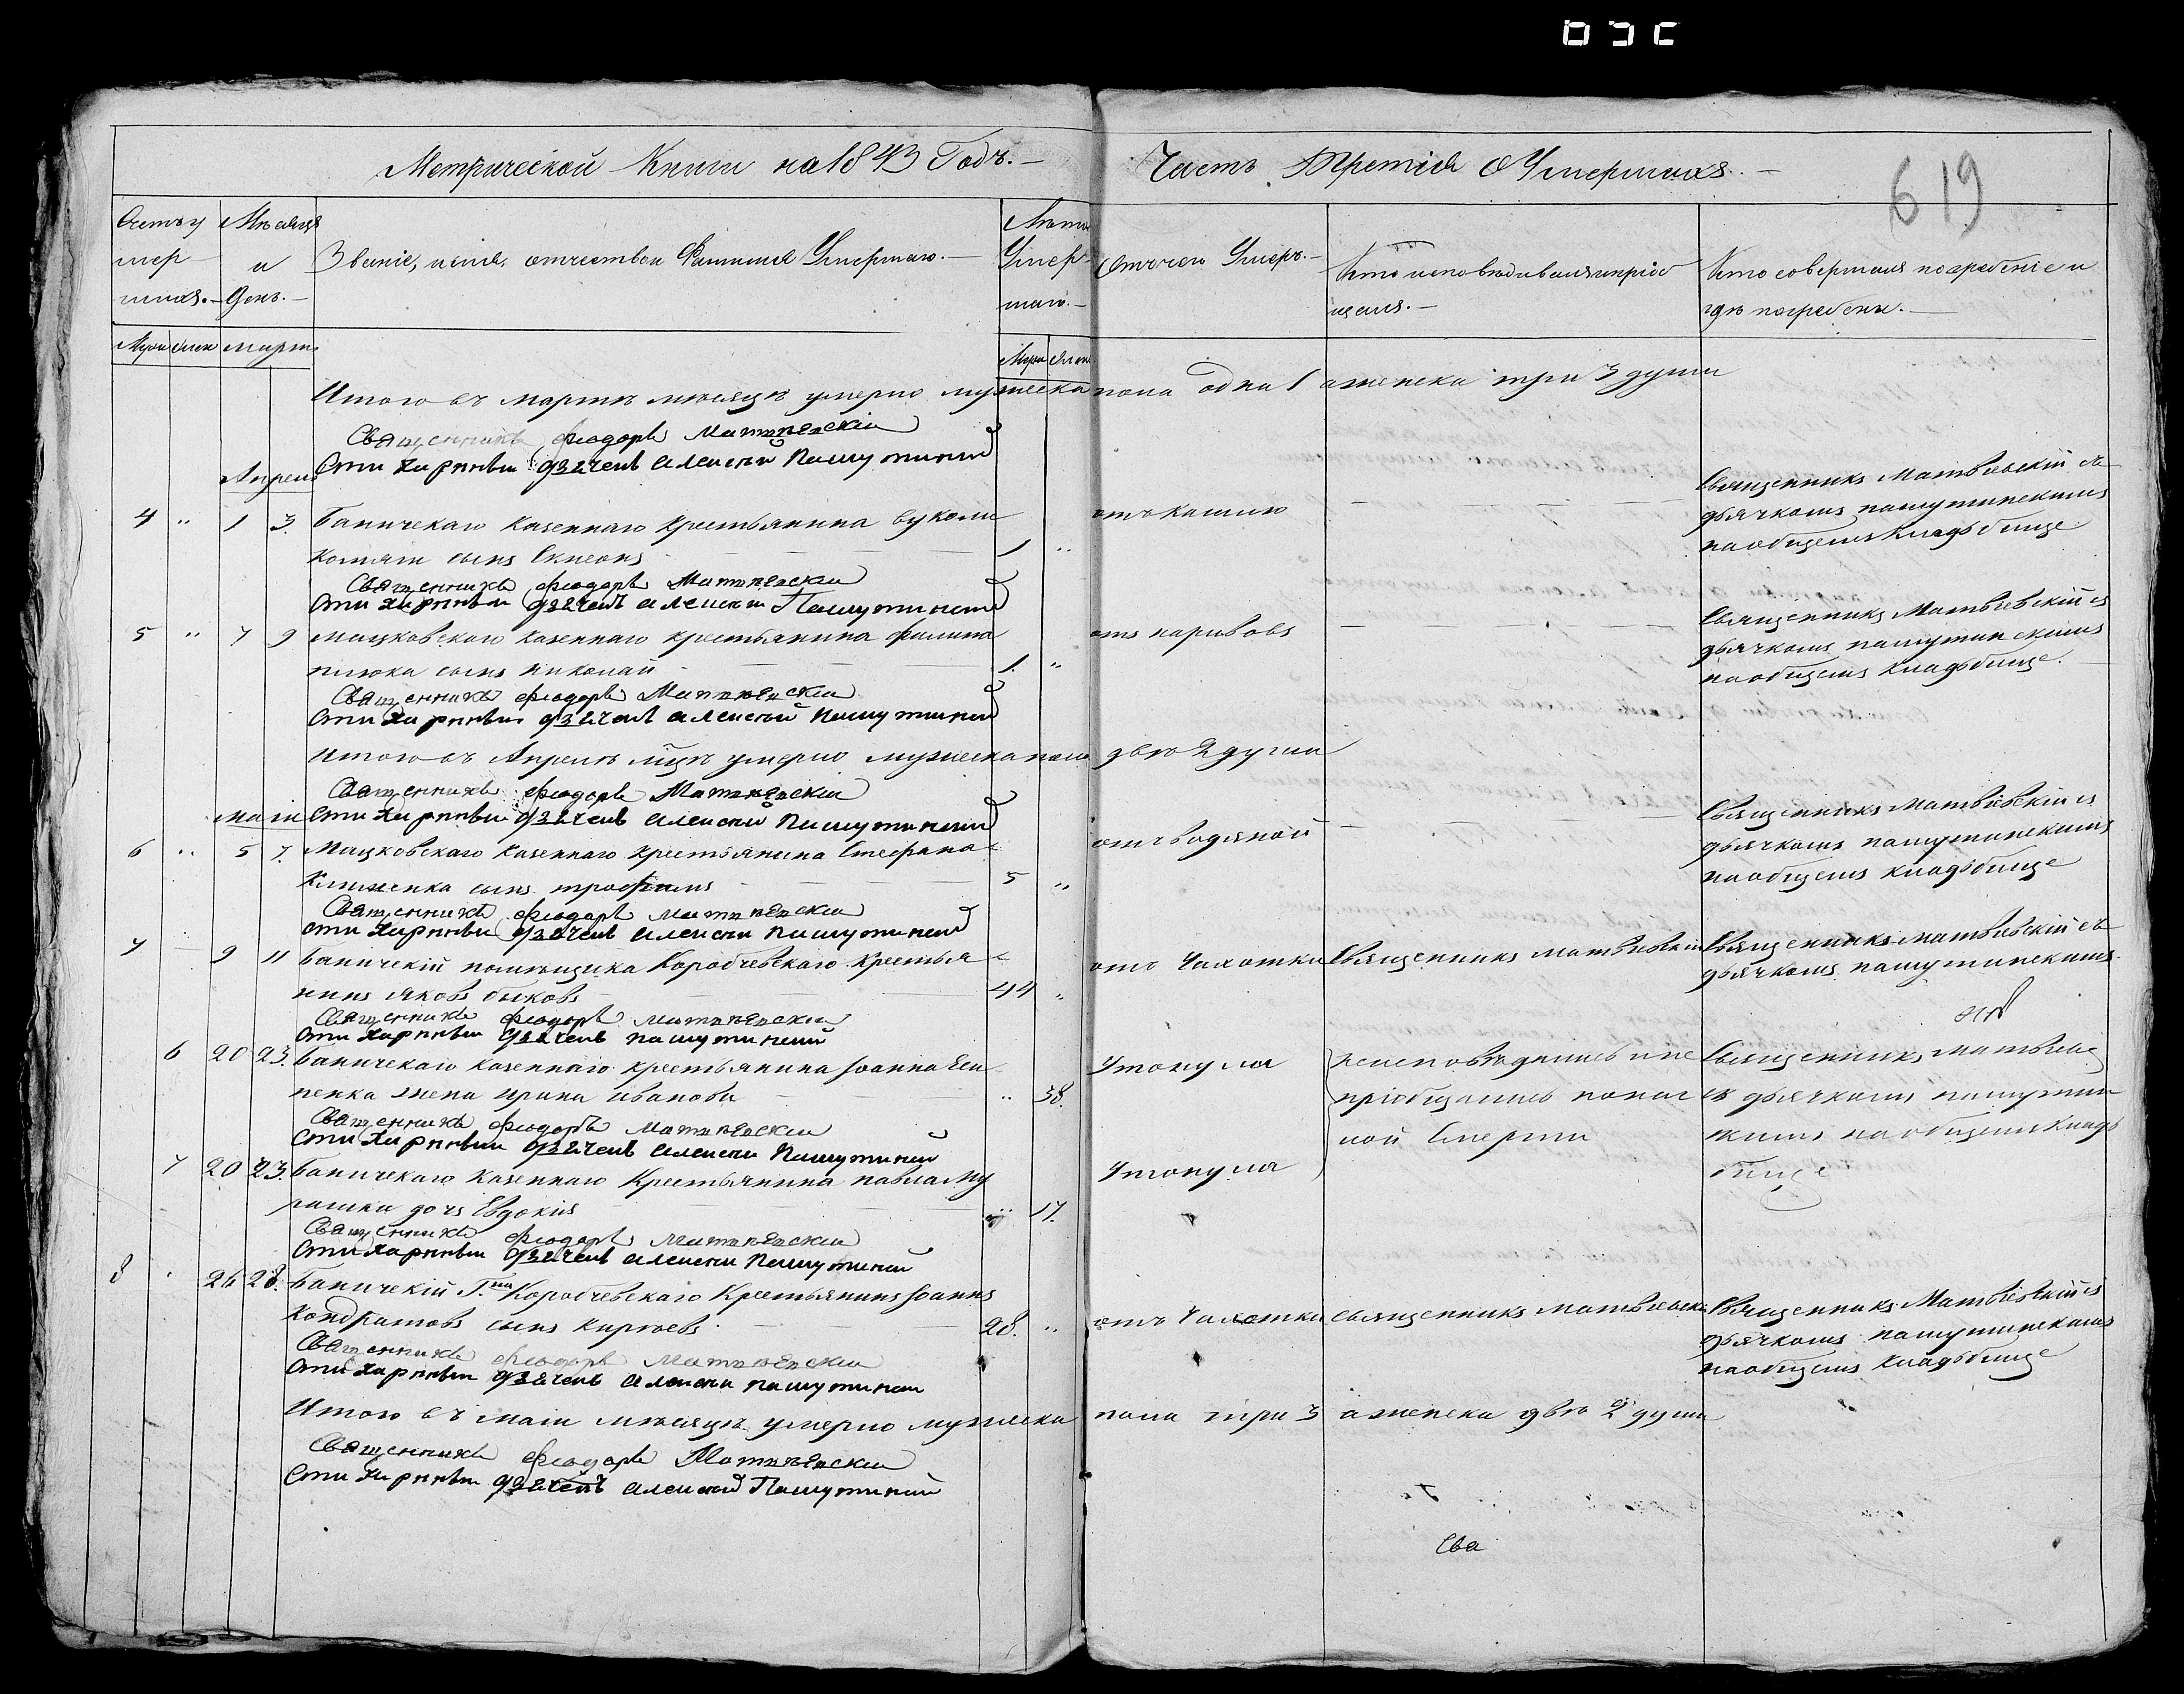 Метрической Книги на 1843 Годъ. —
Часть Третія О Умершихъ. —
619
Счетъ у
мер
шихъ. —
Мѣсяцъ
и
День. —
Званіе, имя, отчество и Фамилія Умершаго. —
Лѣта
Умер
шаго. —
Отъ чего Умеръ. —
Кто исповѣдивалъ и пріоб
щалъ. —
Кто совершалъ погребеніе и
гдѣ погребены. —
Муж Жен Мартъ
Муж Жен
Итого въ мартѣ мѣсяцѣ умерло мужеска пола одна 1 а женска три 3 души
Священникъ Феодоръ Матвѣевскій
Стихарный дьячекъ Алексей Пашутинскій
Апрель
4 " 1 3. Баничскаго казеннаго крестьянина
сынъ 1 "
отъ кашлю
Священникъ Матвѣевскій съ
дьячкомъ пашутинскимъ
на общемъ кладьбище
Священникъ Феодоръ Матвѣевскій
Стихарный дьячекъ Алексей Пашутинскій
5 " 7 9 Мацковскаго казеннаго крестьянина филипа
сынъ Николай 1. "
отъ нарывовъ
Священникъ Матвѣевскій съ
дьячкомъ пашутинскимъ
на общемъ кладьбище.
Священникъ Феодоръ Матвѣевскій
Стихарный дьячекъ Алексей Пашутинскій
Итого въ Апрелѣ мцѣ умерло мужеска пола двѣ 2 души
Священникъ Феодоръ Матвѣевскій
Маій Стихарный дьячекъ Алексей Пашутинскій
6 " 5 7. Мацковскаго казеннаго крестьянина Стефана
Клименка сынъ трофимъ 5 "
отъ водяной
Священникъ Матвѣевскій съ
дьячкомъ пашутинскимъ
на общемъ кладьбище
Священникъ Феодоръ Матвѣевскій
Стихарный дьячекъ Алексей Пашутинскій
7 9 11 Баничскій помѣщика Коробчевскаго Крестья
нинъ Яковъ быковъ 44 "
отъ Чахотки
Священникъ матвѣевскій
Священникъ матвѣевскій съ
дьячкомъ пашутинскимъ
Священникъ Феодоръ Матвѣевскій
Стихарный дьячекъ Пашутинскій
6 20 23. Баничскаго казеннаго крестьянина Іоанна
жена ирина иванова " 38.
Утонула
неисповѣдались и не
пріобщались по
ной Смерти
Священникъ Матвѣев
съ дьячкомъ пашутин
скимъ на общемъ кладь
бище
Священникъ Феодоръ Матвѣевскій
Стихарный дьячекъ Алексей Пашутинскій
7 20 23. Баничскаго казеннаго Крестьянина павла
дочь Евдокія " 17.
Утонула
Священникъ Феодоръ Матвѣевскій
Стихарный дьячекъ Алексей Пашутинскій
8 26 28. Баничскій Г.на Коробчевскаго Крестьянинъ Іоаннъ
Кондратовъ сынъ 28. "
отъ Чахотки
священникъ матвѣевск
Священникъ Матвѣевскій съ
дьячкомъ пашутинскимъ
на общемъ кладьбище
Священникъ Феодоръ Матвѣевскій
Стихарный дьячекъ Алексей Пашутинскій
Итого въ маіи мѣсяцѣ умерло мужеска пола три 3 а женска двѣ 2 души
Священникъ Феодоръ Матвѣевскій
Стихарный дьячекъ Алексей Пашутинскій
Сва